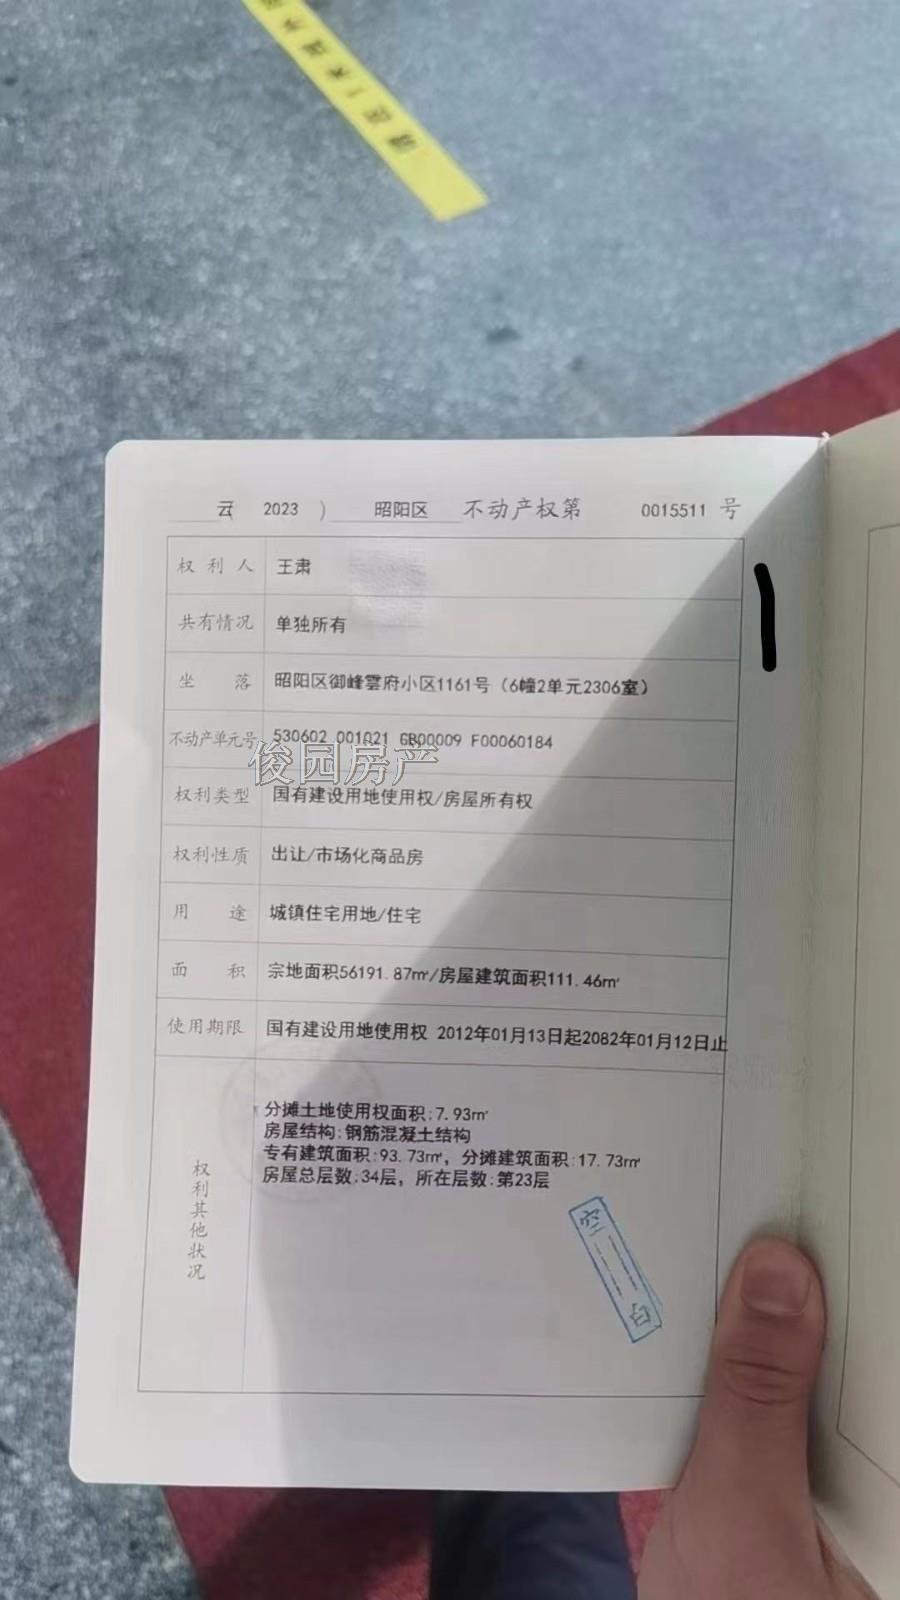 云 2023 ） 昭阳区 不动产权第 0015511 号
权利人 王肃
共有情况 单独所有
坐落 昭阳区御峰雲府小区1161号（6幢2单元2306室）
不动产单元号 530602 001021 GB00009 F00060184
俊园房产
权利类型 国有建设用地使用权/房屋所有权
权利性质 出让/市场化商品房
用途 城镇住宅用地/住宅
面积 宗地面积56191.87㎡/房屋建筑面积111.46㎡
使用期限 国有建设用地使用权 2012年01月13日起2082年01月12日止
权利其他状况
分摊土地使用权面积:7.93㎡
房屋结构:钢筋混凝土结构
专有建筑面积:93.73㎡，分摊建筑面积:17.73㎡
房屋总层数:34层，所在层数:第23层
空白